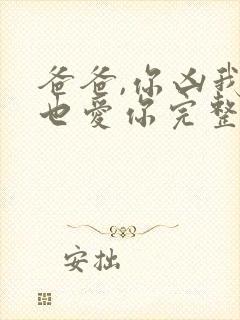 爸爸,你凶我
也爱你完整
安拙